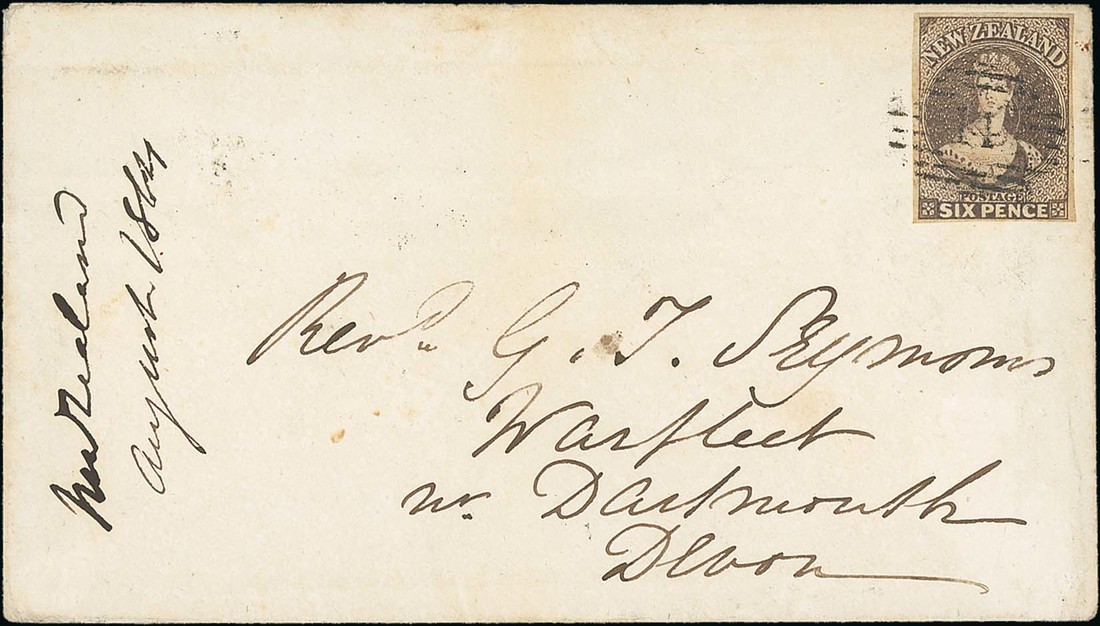 NEW ZEALAND
1
POSTAGE
SIX PENCE
New Zealand
August 1864
Revd. G. T. Seymour
Warfleet
nr. Dartmouth
Devon